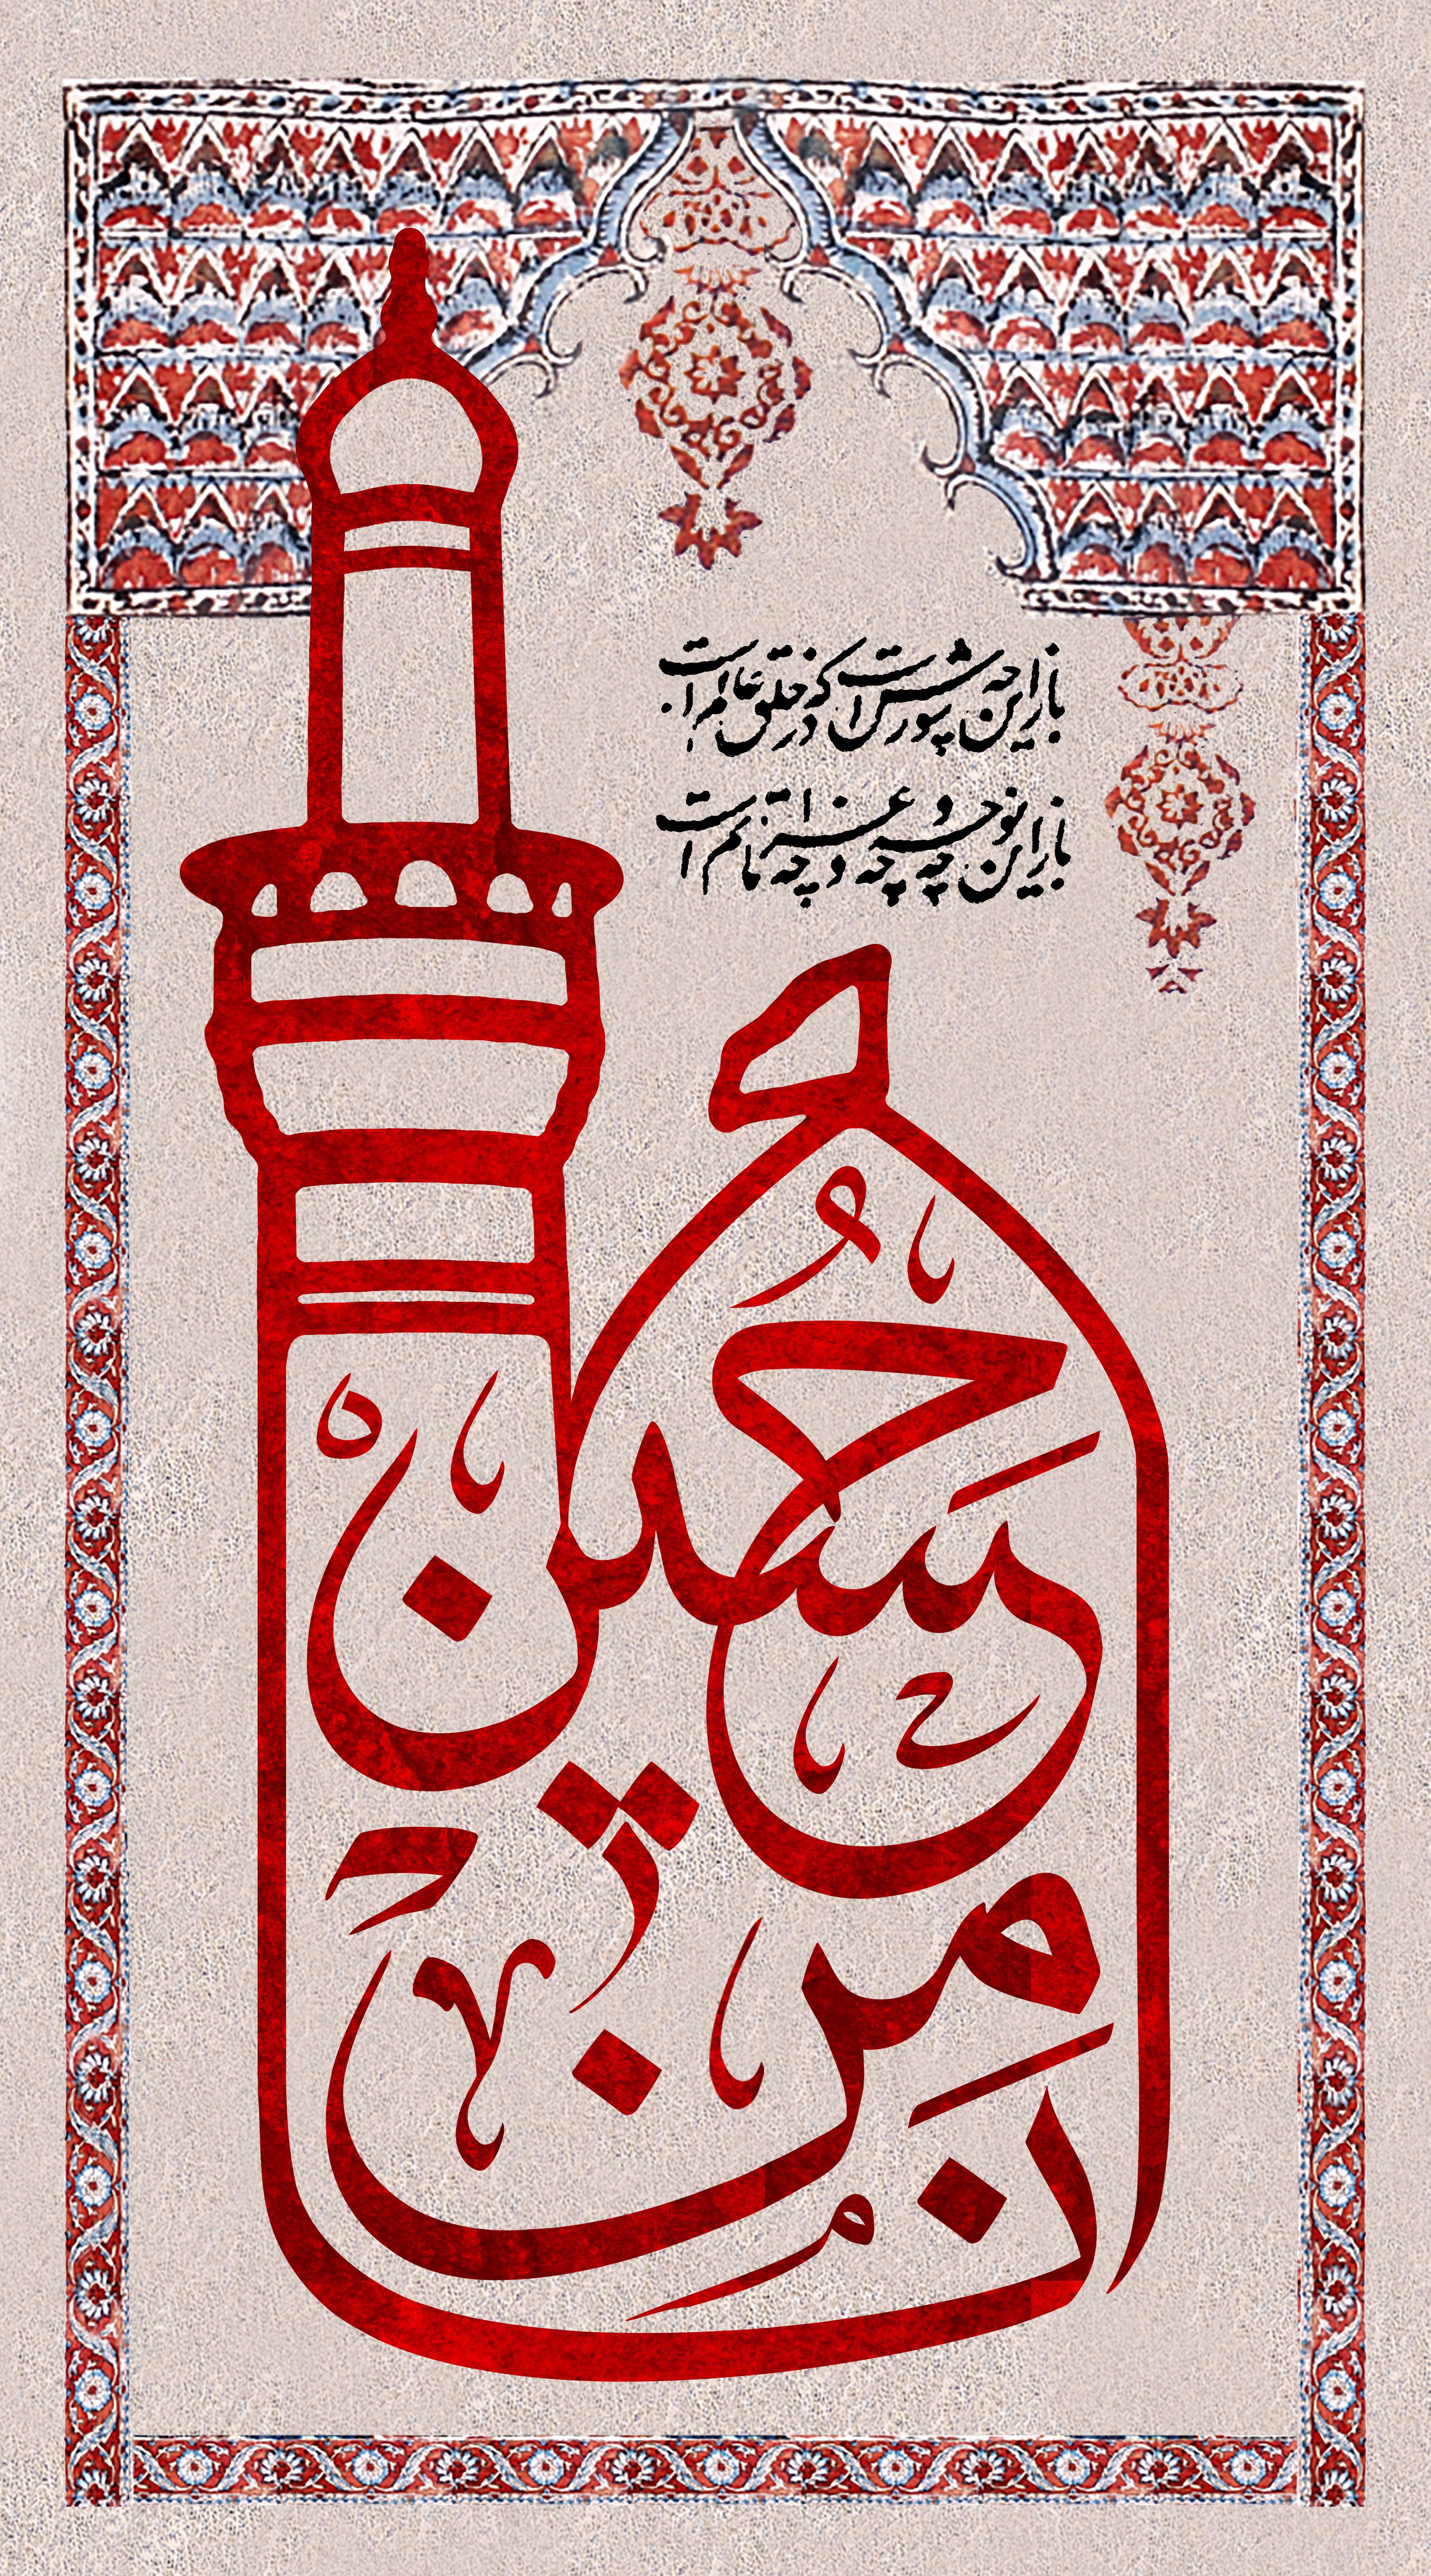 باز این چه شورش است که در خلق عالم است
باز این چه نوحه و چه عزا و چه ماتم است
حسین
من
انا